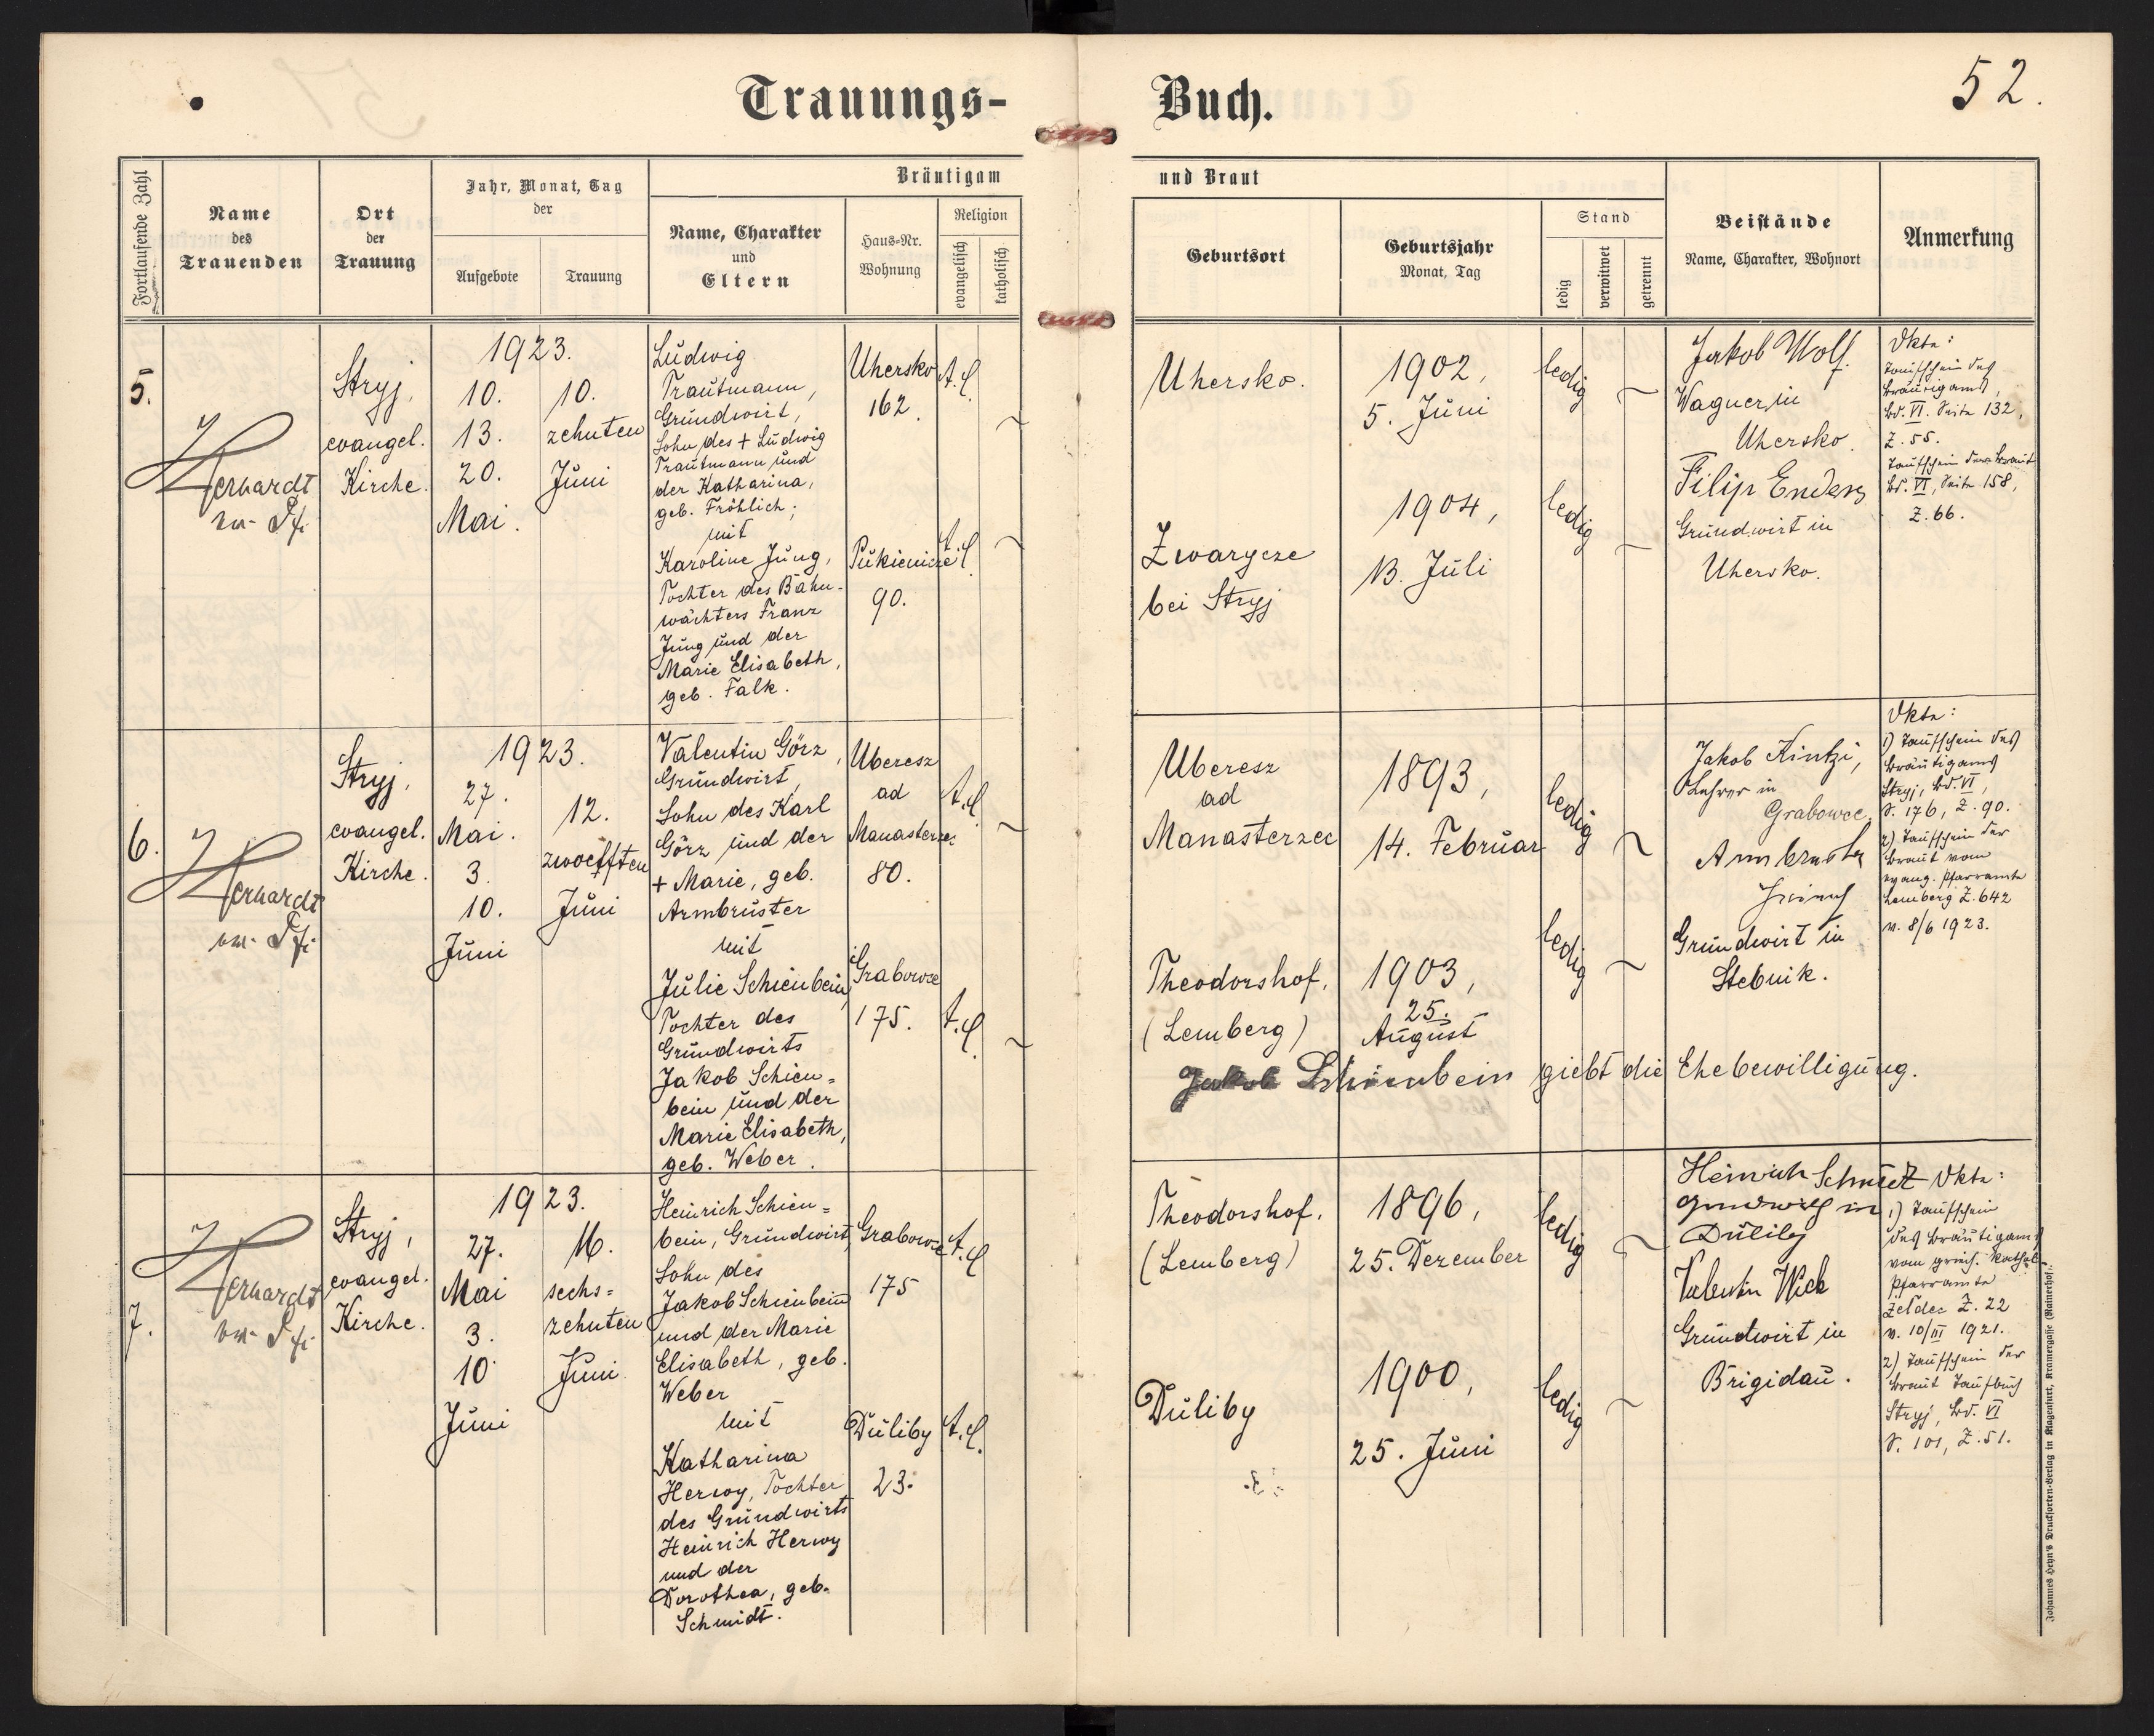 52.
Trauungs-Buch.
Fortlaufende Zahl
Name
des
Trauenden
Ort
der
Trauung
Jahr, Monat, Tag
der
Aufgebote
Trauung
Bräutigam
und Braut
Name, Charakter
und
Eltern
Haus-Nr.
Wohnung
Religion
evangelisch
katholisch
Geburtsort
Geburtsjahr
Monat, Tag
Stand
ledig
verwitwet
getrennt
Beistände
Name, Charakter, Wohnort
Anmerkung
5.
Stryj,
evangel.
Kirche.
1923.
10.
13.
20.
Mai.
10.
zehnten
Juni
Ludwig
Trautmann,
Grundwirt,
Sohn des + Ludwig
Trautmann und
der Katharina,
geb. Fröhlich;
mit
Karoline Jung,
Tochter des Bahn-
wächters Franz
Jung und der
Marie Elisabeth,
geb. Falk.
Uhersko
162.
A.C.
Pukienicze
90.
A.C.
Uhersko.
1902,
5. Juni
ledig
Zwarycze
bei Stryj
1904,
13. Juli
ledig
Jakob Wolf.
Wagner in
Uhersko.
Filip Enders
Grundwirt in
Uhersko.
Akta:
Taufschein des
Bräutigams,
Bd. VI. Seite 132,
Z. 55.
Taufschein der Braut
Bd. VI, Seite 158,
Z. 66.
6.
Stryj,
evangel.
Kirche.
1923.
27.
Mai.
3.
10.
Juni
12.
zwoelften
Juni
Valentin Görz,
Grundwirt,
Sohn des Karl
Görz und der
+ Marie, geb.
Armbruster
mit
Julie Schienbein,
Tochter des
Grundwirts
Jakob Schien=
bein und der
Marie Elisabeth,
geb. Weber.
Uberesz
ad
Manasterzec
80.
A.C.
Grabowce
175.
A.C.
Uberesz
ad
Manasterzec
1893,
14. Februar
ledig
Theodorshof,
(Lemberg)
1903,
25.
August
ledig
Jakob Schienbein giebt die Ehebewilligung.
Jakob Kintzi,
Lehrer in
Grabowce.
Grundwirt in
Stebnik.
Akta:
1) Taufschein des
Bräutigams
Stryj, Bd. VI,
S. 176, Z. 90.
2) Taufschein der
Braut vom
evang. Pfarramte
Lemberg Z. 642
v. 8/6 1923.
7.
Stryj,
evangel.
Kirche.
1923.
27.
Mai
3.
10.
Juni
16.
sechs=
zehnten
Juni
Heinrich Schien=
bein, Grundwirt,
Sohn des
Jakob Schienbein
und der Marie
Elisabeth, geb.
Weber
mit
Katharina
Hervoy, Tochter
des Grundwirts
Heinrich Hervoy
und der
Dorothea, geb.
Schmidt.
Grabowce
175
A.C.
Duliby
23.
A.C.
Theodorshof.
(Lemberg)
1896,
25. Dezember
ledig
Duliby
1900,
25. Juni
ledig
Heinrich Schmidt
Grundwirth in
Duliby
Valentin
Grundwirt in
Brigidau.
Akta:
1) Taufschein
des Bräutigams
vom griech. kathol.
Pfarramte
Żeldec Z. 22
v. 10/III 1921.
2) Taufschein der
Braut Taufbuch
Stryj, Bd. VI
S. 101, Z. 51.
Johannes Heyn's Drucksorten-Verlag in Klagenfurt, Kramergasse (Rainerhof).